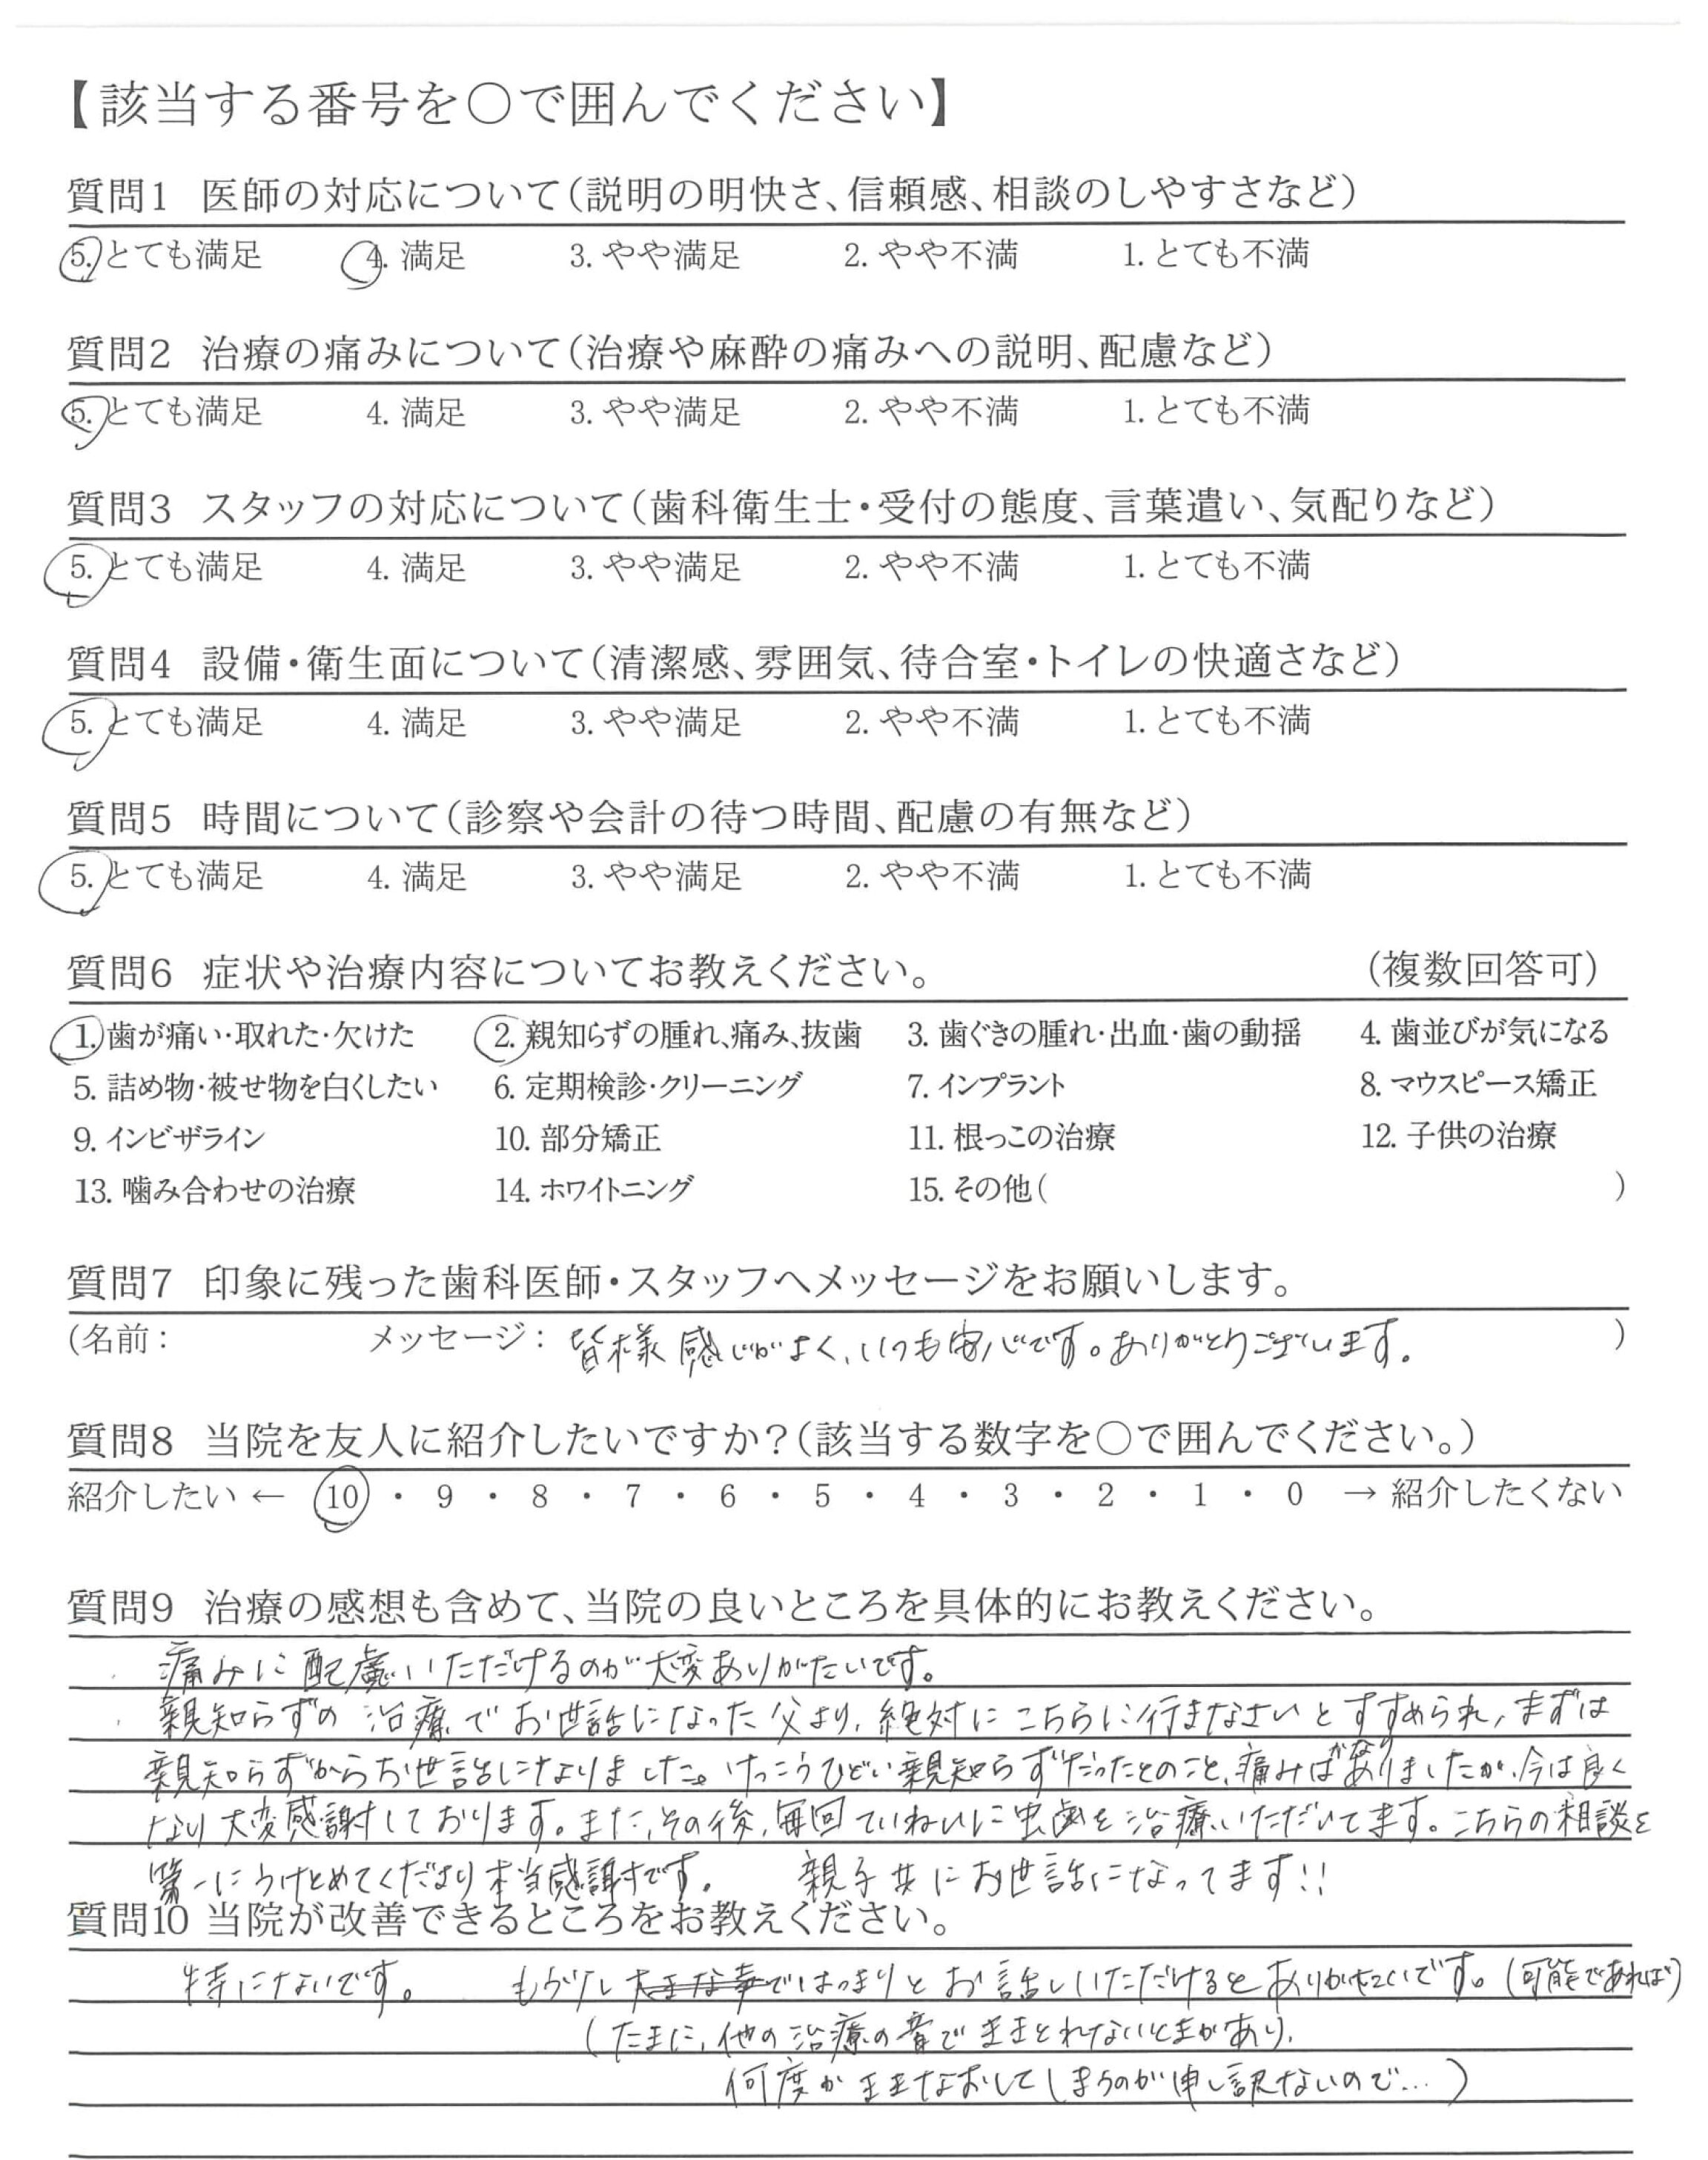 【該当する番号を○で囲んでください】
質問1 医師の対応について(説明の明快さ、信頼感、相談のしやすさなど)
5. とても満足 4. 満足 3. やや満足 2. やや不満 1. とても不満
質問2 治療の痛みについて(治療や麻酔の痛みへの説明、配慮など)
5. とても満足 4. 満足 3. やや満足 2. やや不満 1. とても不満
質問3 スタッフの対応について(歯科衛生士・受付の態度、言葉遣い、気配りなど)
5. とても満足 4. 満足 3. やや満足 2. やや不満 1. とても不満
質問4 設備・衛生面について(清潔感、雰囲気、待合室・トイレの快適さなど)
5. とても満足 4. 満足 3. やや満足 2. やや不満 1. とても不満
質問5 時間について(診察や会計の待つ時間、配慮の有無など)
5. とても満足 4. 満足 3. やや満足 2. やや不満 1. とても不満
質問6 症状や治療内容についてお教えください。 (複数回答可)
1. 歯が痛い・取れた・欠けた 2. 親知らずの腫れ、痛み、抜歯 3. 歯ぐきの腫れ・出血・歯の動揺 4. 歯並びが気になる
5. 詰め物・被せ物を白くしたい 6. 定期検診・クリーニング 7. インプラント 8. マウスピース矯正
9. インビザライン 10. 部分矯正 11. 根っこの治療 12. 子供の治療
13. 噛み合わせの治療 14. ホワイトニング 15. その他( )
質問7 印象に残った歯科医師・スタッフへメッセージをお願いします。
(名前: メッセージ: 皆様感じがよく、いつも安心です。ありがとうございます。 )
質問8 当院を友人に紹介したいですか?(該当する数字を○で囲んでください。)
紹介したい ← 10 ・ 9 ・ 8 ・ 7 ・ 6 ・ 5 ・ 4 ・ 3 ・ 2 ・ 1 ・ 0 → 紹介したくない
質問9 治療の感想も含めて、当院の良いところを具体的にお教えください。
痛みに配慮いただけるのが大変ありがたいです。
親知らずの治療でお世話になった父より、絶対にこちらに行きなさいとすすめられ、まずは
親知らずからお世話になりました。けっこうひどい親知らずだったとのこと、痛みはかなりありましたが、今は良く
なり大変感謝しております。また、その後、毎回ていねいに虫歯を治療いただいてます。こちらの相談を
第一にうけとめてくださり本当感謝です。 親子共にお世話になってます!!
質問10 当院が改善できるところをお教えください。
特にないです。 もう少しではっきりとお話しいただけるとありがたいです。(可能であれば)
(たまに、他の治療の音でききとれないときがあり、
何度かききなおしてしまうのが申し訳ないので…)